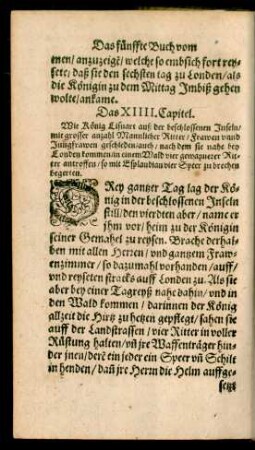 Das fünffte Buch vom
men/ anzuzeigē/ welche so embsich fort rey-
sete/ daß sie den sechsten tag zu Londen/ als
die Königin zu dem Mittag Imbiß gehen
wolte/ ankame.
Das XIIII. Capitel.
Wie König Lisuart auß der beschlossenen Inseln/
mit grosser anzahl Mannlicher Ritter/ Frawen vnnd
Jungfrawen geschieden/ auch/ nach dem sie nahe bey
Londen kommen/ in einem Wald vier gewapneter Rit-
ter antroffen/ so mit Esplandian vier Speer zu brechen
begerten.
DRey gantzer Tag lag der Kö-
nig in der beschlossenen Inseln
still/ den vierdten aber/ name er
jhm vor/ heim zu der Königin
seiner Gemahel zu reysen. Brache derhal-
ben mit allen Herren/ vnd gantzem Fraw-
enzimmer/ so dazumahl vorhanden/ auff/
vnd reyseten stracks auff Londen zu. Als sie
aber bey einer Tagreyß nahe dahin/ vnd in
den Wald kommen/ darinnen der König
allzeit die Hirtz zu hetzen gepflegt/ sahen sie
auff der Landstrassen/ vier Ritter in voller
Rüstung halten/ vñ jre Waffenträger hin-
der jnen/ derē ein jeder ein Speer vñ Schilt
in henden/ dañ jre Herrn die Helm auffge-
setzt